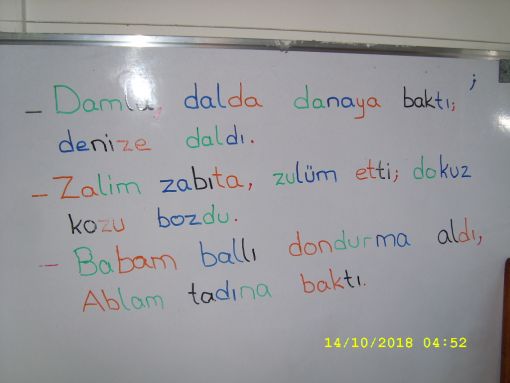 ;
– Damla, dalda danaya baktı;
denize daldı.
– Zalim zabıta, zulüm etti; dokuz
kozu bozdu.
– Babam ballı dondurma aldı,
Ablam tadına baktı.
14/10/2018 04:52